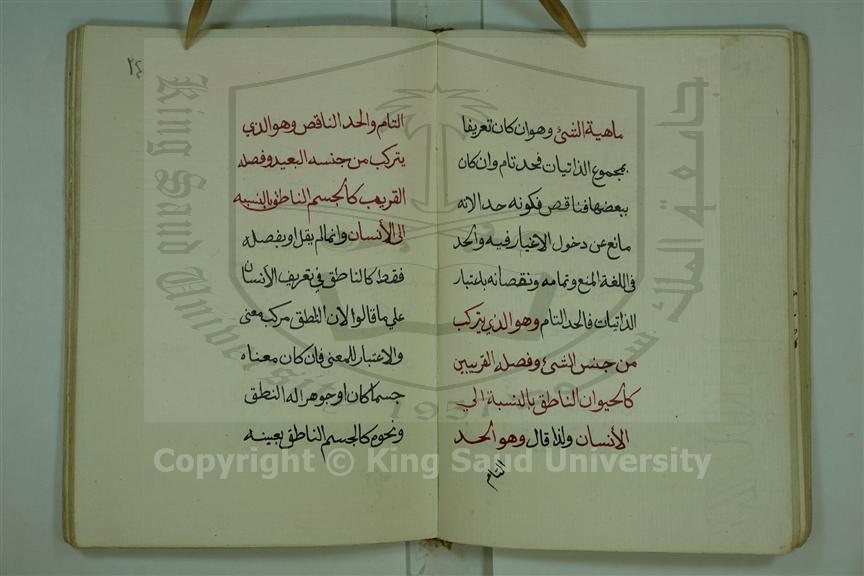 ماهية الشئ وهو ان كان تعريفا
بمجموع الذاتيات فحد تام وان كان
ببعضها فناقص فكونه حدا لانه
مانع عن دخول الاغيار فيه والحد
في اللغة المنع وتمامه ونقصانه باعتبار
الذاتيات فالحد التام وهو الذي يتركب
من جنس الشئ وفصله القريبين
كالحيوان الناطق بالنسبة الي
الأنسان ولذا قال وهو الحد
التام
٢٤
التام والحد الناقص وهو الذي
يتركب من جنسه البعيد وفصله
القريب كالجسم الناطق بالنسبه
الى الأنسان وانما لم يقل او بفصله
فقط كالناطق في تعريف الأنسان
علي ما قالوا لان الناطق مركب معنى
والاعتبار للمعنى فان كان معناه
جسما كان او جوهرا له النطق
ونحوه كالجسم الناطق بعينه
King Saud University
جامعة الملك سعود
1957
Copyright © King Saud University